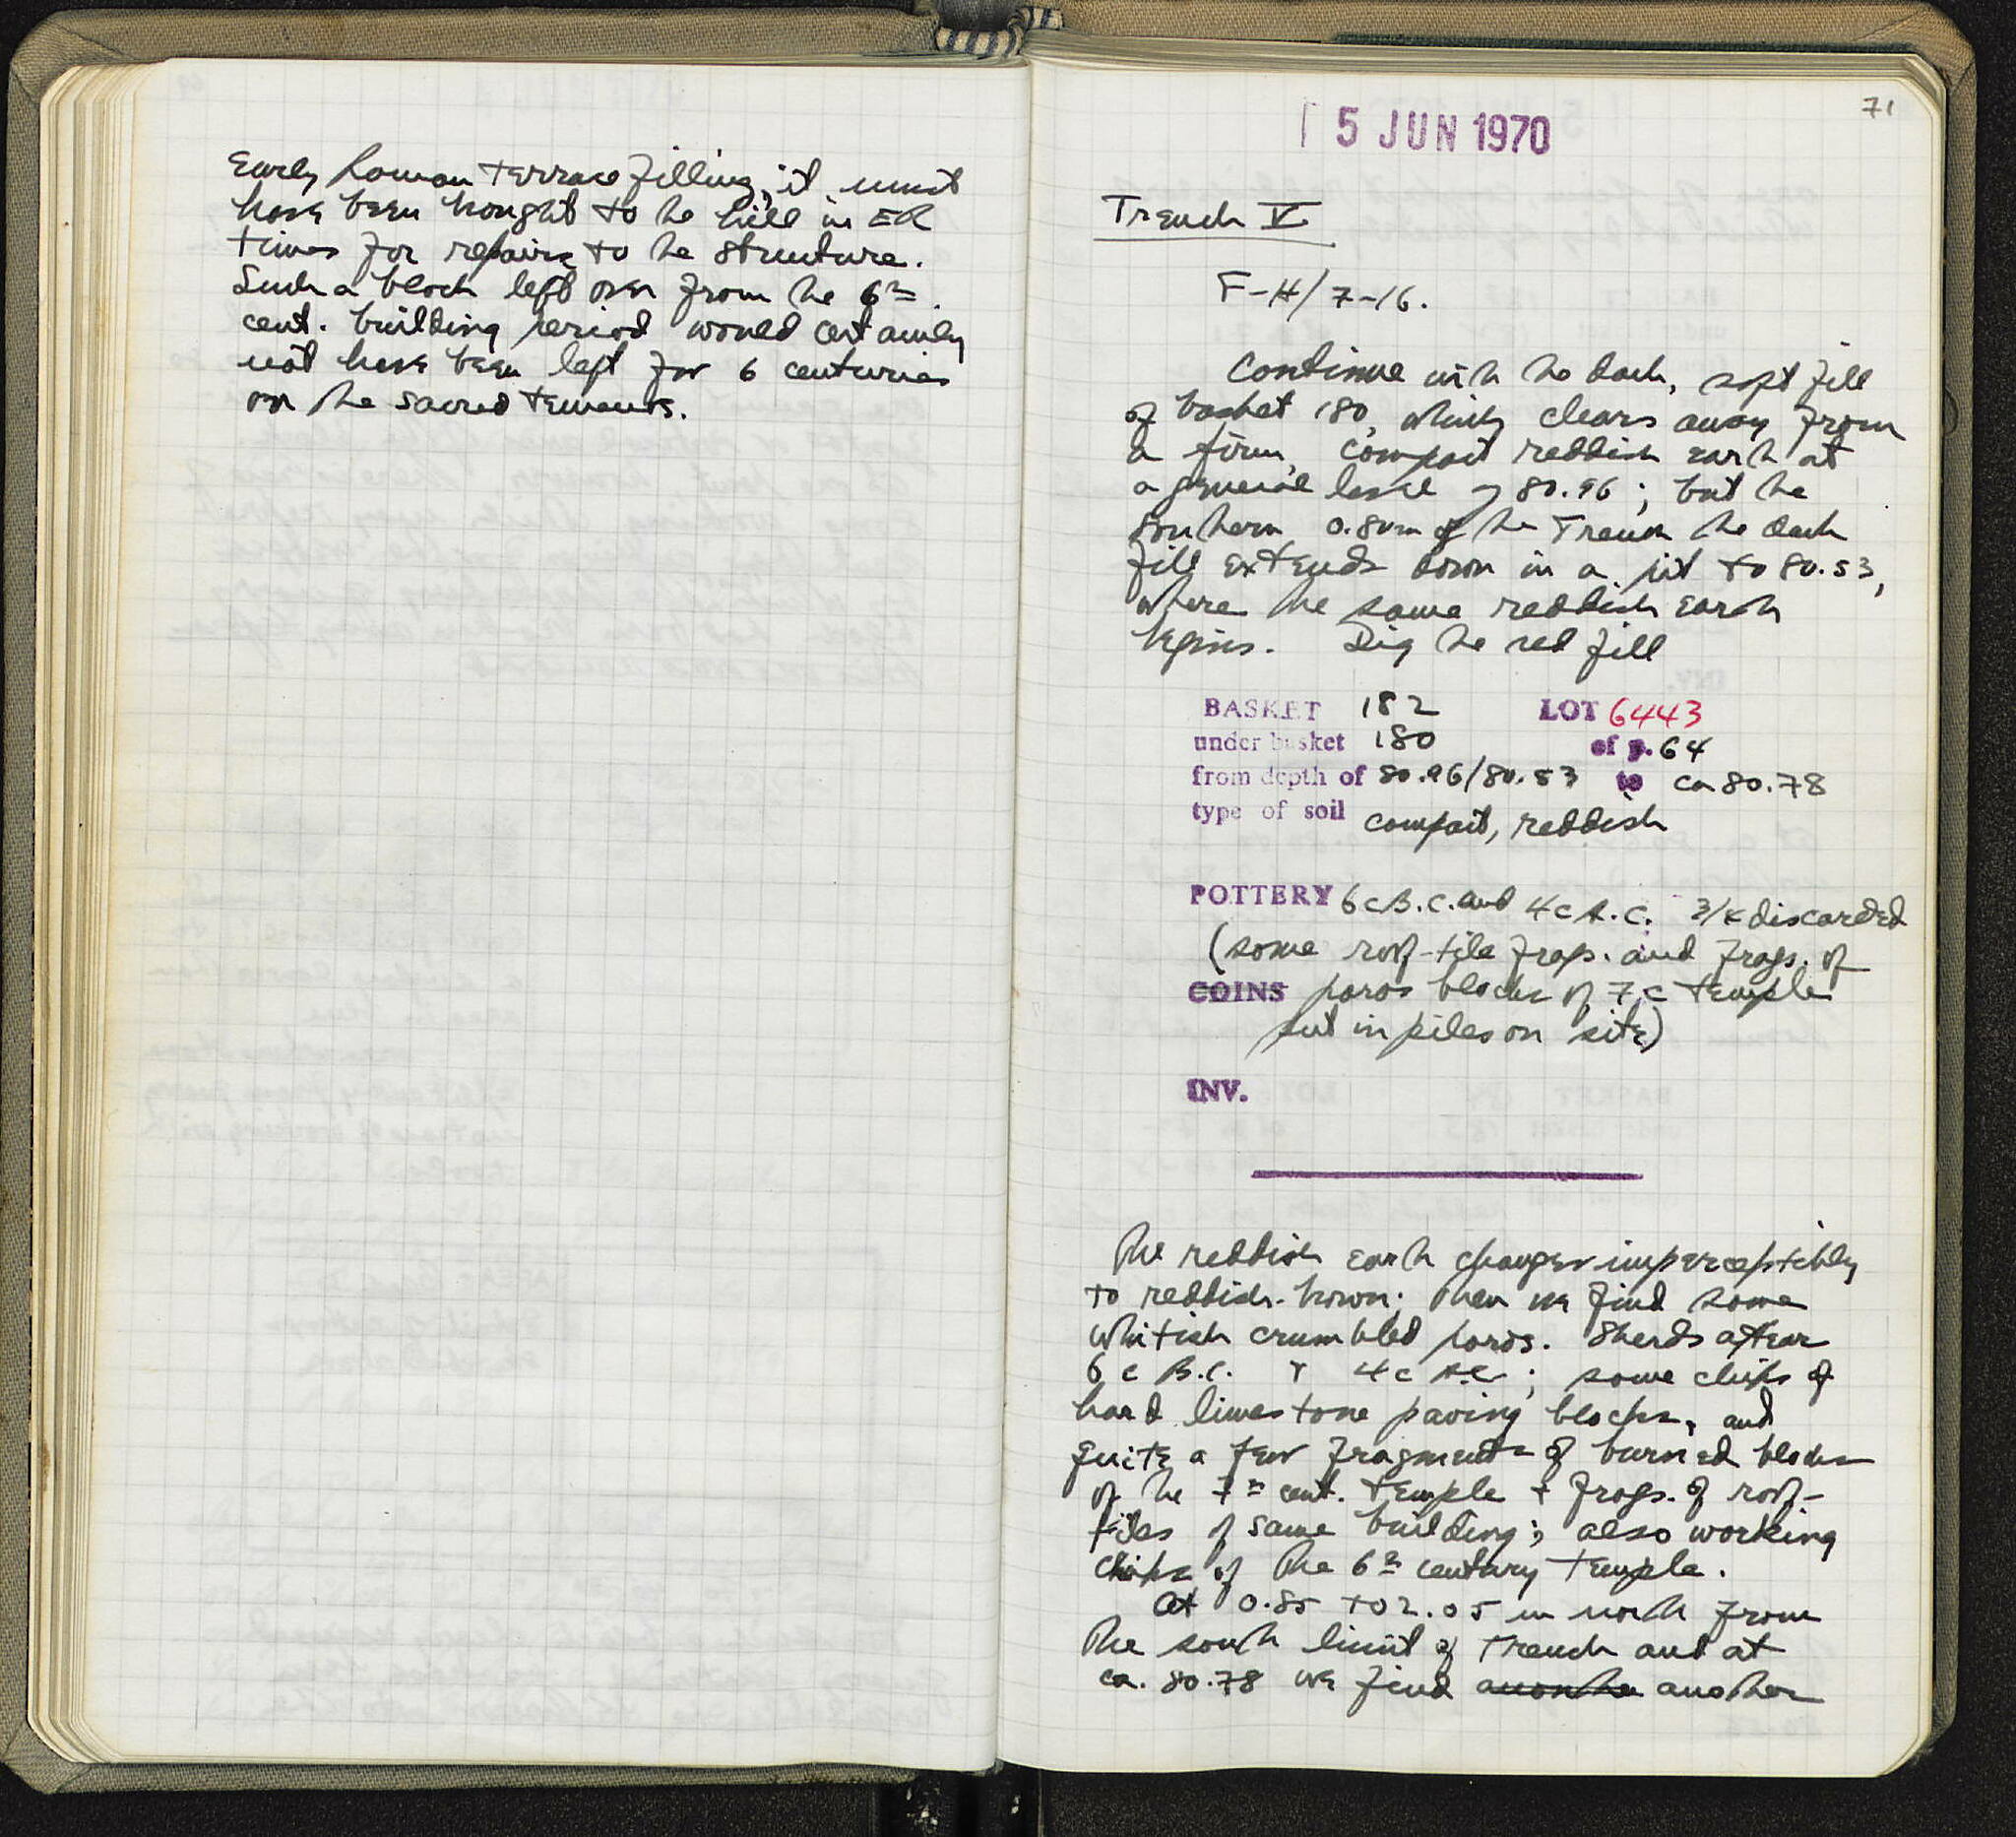 Early Roman terrace filling, it must
have been brought to the hill in ER
times for repairs to the structure.
Such a block left over from the 6th
cent. building period would certainly
not have been left for 6 centuries
on the sacred temenos.
71
15 JUN 1970
Trench V
F-H/7-16.
Continue with the dark, soft fill
of basket 180, which clears away from
a firm, compact reddish earth at
a general level of 80.96; but the
southern 0.80m of the Trench the dark
fill extends down in a pit to 80.53,
where the same reddish earth
begins. Dig the red fill
BASKET 182 LOT 6443
under basket 180 of p. 64
from depth of 80.96/80.53 to ca 80.78
type of soil compact, reddish
POTTERY 6 c B.C. and 4 c A.C. 3/4 discarded
(some roof-tile frags. and frags. of
COINS poros blocks of 7 c temple
put in piles on site)
INV.
The reddish earth changes imperceptibly
to reddish-brown; then we find some
whitish crumbled poros. Sherds appear
6 c B.C. & 4 c A.C; some chips of
hard limestone paving blocks, and
quite a few fragments of burned blocks
of the 7th cent. temple + frags. of roof-
tiles of same building; also working
chips of the 6th century temple.
At 0.85 to 2.05 m north from
the south limit of Trench and at
ca. 80.78 we find another